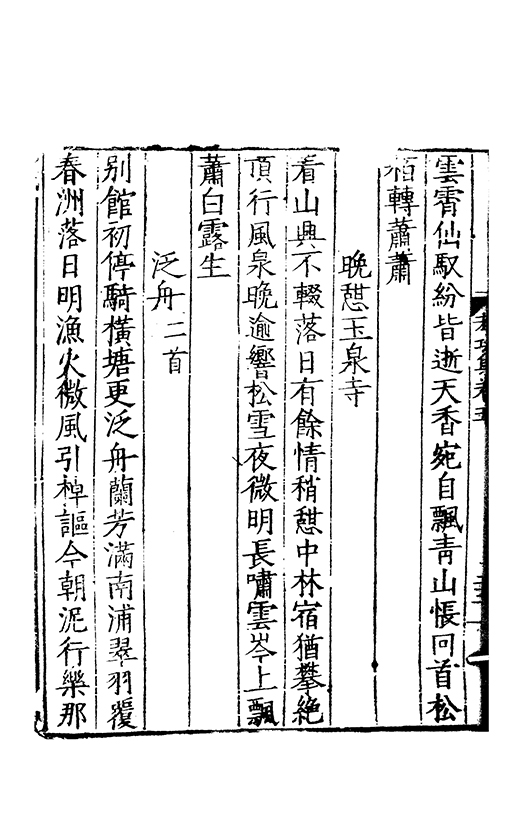 雲霄仙馭紛皆逝天香宛自飄青山悵回首松
栢轉蕭蕭
晚憇玉泉寺
看山興不輟落日有餘情稍憇中林宿猶攀絶
頂行風泉晚逾響松雪夜微明長嘯雲岑上飄
蕭白露生
泛舟二首
別館初停騎橫塘更泛舟蘭芳滿南浦翠羽覆
春洲落日明漁火微風引棹謳今朝泥行樂那